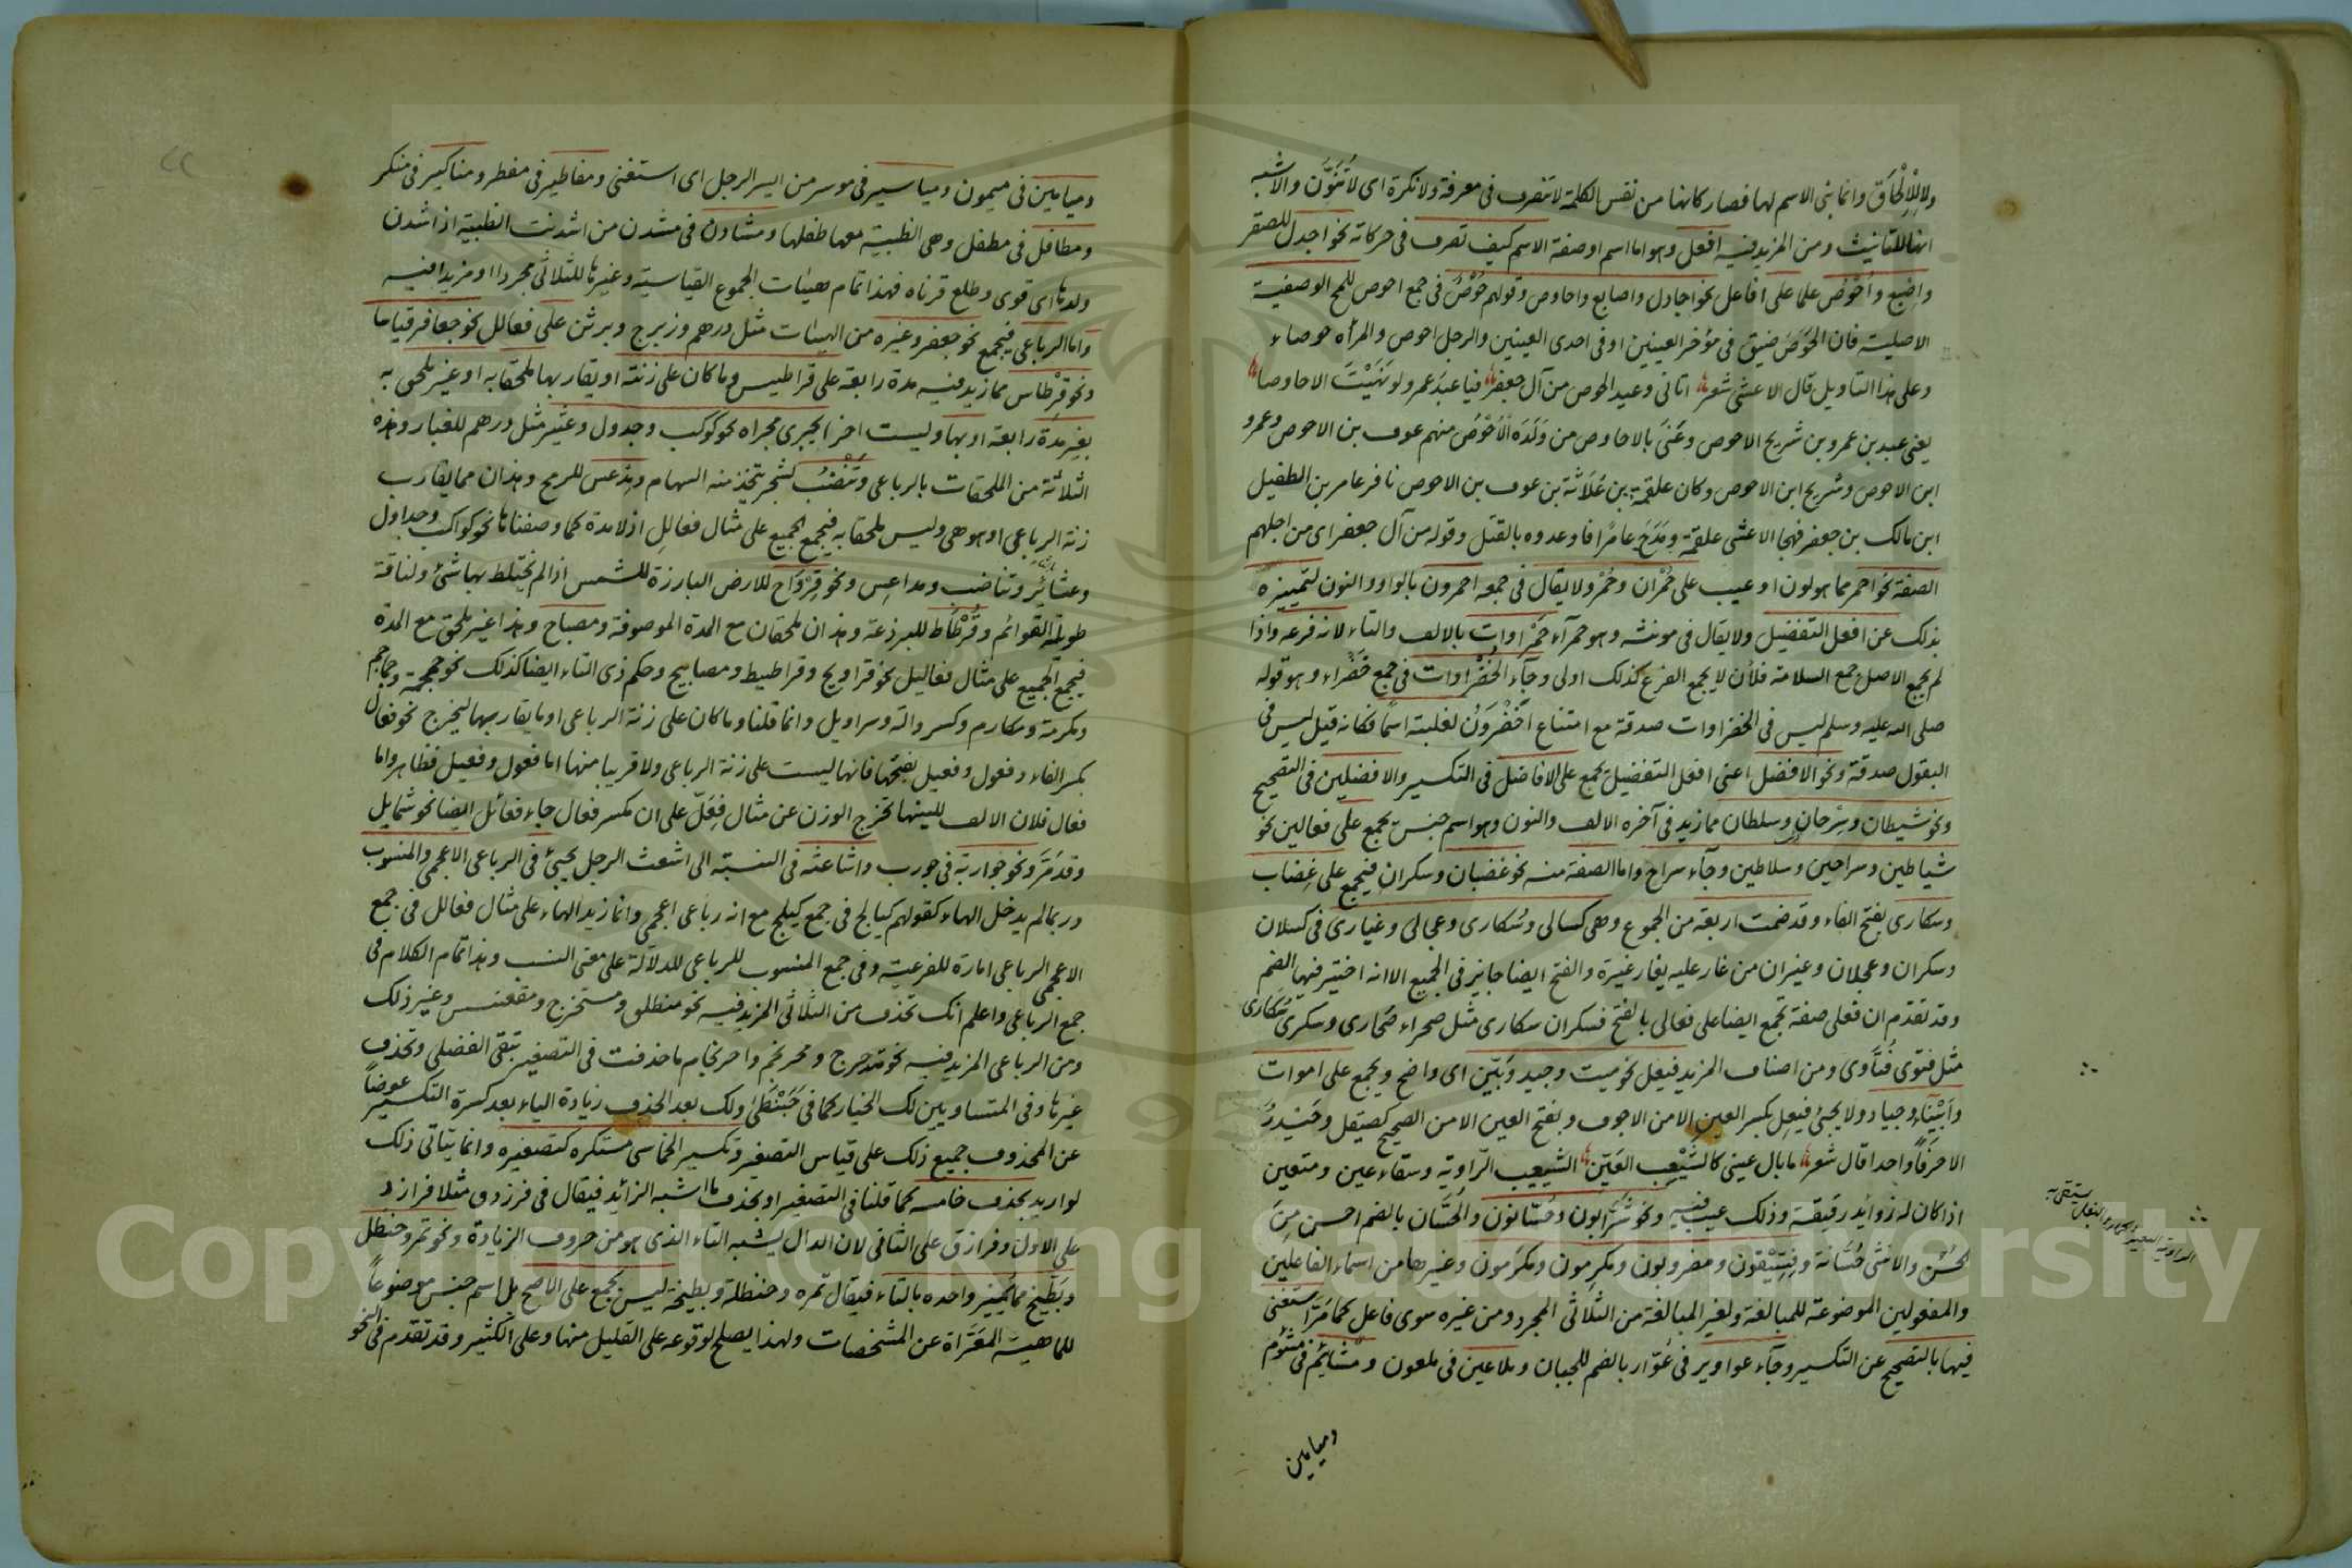 ولا للالحاق وانما بنى الاسم لها فصار كانها من نفس الكلمة لا تنصرف فى معرفة ولا نكرة اى لا تنوّن والاشبه
انها للتانيث ومن المزيد فيه افعل وهو اما اسم او صفة الاسم كيف تصرف فى حركاته نحو اجدل للصقر
واصبع واحوص علما على افاعل نحو اجادل واصابع واحاوص وقولهم حوص فى جمع احوص للمح الوصفية
الاصلية فان الحوص ضيق فى مؤخر العينين او فى احدى العينين والرجل احوص والمرأة حوصاء
وعلى هذا التاويل قال الاعشى شعر اتانى وعيد الحوص من آل جعفر فيا عبد عمرو لو نهيت الاحاوصا
يعنى عبد بن عمرو بن شريح الاحوص وعنى بالاحاوص من ولده الاحوص منهم عوف بن الاحوص وعمرو
ابن الاحوص وشريح ابن الاحوص وكان علقمة بن علاثة بن عوف بن الاحوص نافر عامر بن الطفيل
ابن مالك بن جعفر فهجا الاعشى علقمة ومدح عامرًا فاوعدوه بالقتل وقوله من آل جعفر اى من اجلهم
الصفة نحو احمر مما هو لون او عيب على حمران وحمر ولا يقال فى جمعه احمرون بالواو والنون لتمييزه
بذلك عن افعل التفضيل ولا يقال فى مونثه وهو حمراء حمراوات بالالف والتاء لانه فرعه واذا
لم يجمع الاصل جمع السلامة فلأن لا يجمع الفرع كذلك اولى وجاء الخضراوات فى جمع خضراء وهو قوله
صلى الله عليه وسلم ليس فى الخضراوات صدقة مع امتناع اخضرون لغلبته اسمًا فكانه قيل ليس فى
البقول صدقة ونحو الافضل اعنى افعل التفضيل يجمع على الافاضل فى التكسير والافضلين فى التصحيح
ونحو شيطان وسرحان وسلطان مما زيد فى آخره الالف والنون وهو اسم جنس يجمع على فعالين نحو
شياطين وسراحين وسلاطين وجاء سراح واما الصفة منه نحو غضبان وسكران فيجمع على غضاب
وسكارى بفتح الفاء وقد ضمت اربعة من الجموع وهى كسالى وسكارى وعجالى وغيارى فى كسلان
وسكران وعجلان وغيران من غار عليه يغار غيرة والفتح ايضا جايز فى الجميع الا انه اختير فيها الضم
وقد تقدم ان فعلى صفة تجمع ايضا على فعالى بالفتح فسكران سكارى مثل صحراء صحارى وسكرى سكارى
مثل فتوى فتاوى ومن اصناف المزيد فيعل نحو ميت وجيد وبيّن اى واضح ويجمع على اموات
وابيناء وجياد ولا يجئ فيعل بكسر العين الا من الاجوف وبفتح العين الا من الصحيح كصيقل وحيدر
الا حرفاً واحدا قال شعر ما بال عينى كالشعيب العين الشعيب الراوية وسقاء عين ومتعين
اذا كان له زوائد رقيقة وذلك عيب فيه ونحو شرابون وحسانون والحسان بالضم احسن من
الحسن والانثى حسانة وفسيقون ومضروبون ومكرمون ومكرمون وغيرها من اسماء الفاعلين
والمفعولين الموضوعة للمبالغة ولغير المبالغة من الثلاثى المجرد ومن غيره سوى فاعل كما مر استغنى
فيها بالتصحيح عن التكسير وجاء عواوير فى عوّار بالضم للجبان وملاعين فى ملعون ومشائيم فى مشئوم
وميامين
الراوية البعير او الحمار او البغل يستقى به
وميامين فى ميمون ومياسير فى موسر من ايسر الرجل اى استغنى ومفاطير فى مفطر ومناكير فى منكر
ومطافل فى مطفل وهى الظبية معها طفلها ومشادن فى مشدن من اشدنت الظبية اذا شدن
ولدها اى قوى وطلع قرناه فهذا تمام هيئات الجموع القياسية وغيرها للثلاثى مجردا او مزيدا فيه
واما الرباعى فيجمع نحو جعفر وغيره من الهيئات مثل درهم وزبرج وبرثن على فعالل نحو جعافر قياسا
ونحو قرطاس مما زيد فيه مدة رابعة على قراطيس وما كان على زنته او يقاربها ملحقا به او غير ملحق به
بغير مدة رابعة او بها وليست اخرا يجرى مجراه نحو كوكب وجدول وعثير مثل درهم للغبار وهذه
الثلاثة من الملحقات بالرباعى وتنضب لشجر يتخذ منه السهام ومدعس للرمح وهذان مما يقارب
زنة الرباعى او هو هى وليس ملحقا به فيجمع الجميع على مثال فعالل اذ لا مدة كما وصفنا ها نحو كواكب وجداول
وعثائر وتناضب ومداعس ونحو قرواح للارض البارزة للشمس اذا لم يختلط بها شئ ولناقة
طويلة القوائم وقرطاط للبرذعة وهذان ملحقان مع المدة الموصوفة ومصباح وهذا غير ملحق مع المدة
فيجمع الجميع على مثال فعاليل نحو قراويح وقراطيط ومصابيح وحكم ذى التاء ايضا كذلك نحو جمجمة وجماجم
ومكرمة ومكارم وكسر والة وسراويل وانما قلنا وما كان على زنة الرباعى او ما يقاربها ليخرج نحو فعال
بكسر الفاء وفعول وفعيل بفتحها فانها ليست على زنة الرباعى ولا قريبا منها اما فعول وفعيل فظاهر واما
فعال فلان الالف للينها تخرج الوزن عن مثال فعلل على ان مكسر فعال جاء فعائل ايضا نحو شمايل
وقد مر ونحو جواربة فى جورب واشاعثة فى النسبة الى اشعث الرجل يجئ فى الرباعى الاعجمى والمنسوب
وربما لم يدخل الهاء كقولهم كيالج فى جمع كيلج مع انه رباعى اعجمى وانما زيد الهاء على مثال فعالل فى جمع
الاعجمى الرباعى امارة للفرعية وفى جمع المنسوب للرباعى للدلالة على معنى النسب وهذا تمام الكلام فى
جمع الرباعى واعلم انك تحذف من الثلاثى المزيد فيه نحو منطلق ومستخرج ومقعنسس وغير ذلك
ومن الرباعى المزيد فيه نحو متدحرج ومحرنجم واحرنجام ما حذفت فى التصغير تبقى الفضلى وتحذف
غيرها وفى المتساويين لك الخيار كما فى حبنطى ولك بعد الحذف زيادة الياء بعد كسرة التكسير عوضاً
عن المحذوف جميع ذلك على قياس التصغير وتكسير الخماسى مستكره كتصغيره وانما يتاتى ذلك
لو اريد بحذف خامسه كما قلنا فى التصغير او بحذف ما اشبه الزائد فيقال فى فرزدق مثلا فرازد
على الاول وفرازق على الثانى لان الدال يشبه التاء الذى هو من حروف الزيادة ونحو تمر وحنظل
وبطيخ مما يميز واحده بالتاء فيقال تمرة وحنظلة وبطيخة ليس بجمع على الاصح بل اسم جنس موضوعاً
للماهية المعراة عن المشخصات ولهذا يصلح لوقوعه على القليل منها وعلى الكثير وقد تقدم فى النحو
Copyright © King Saud University
1957